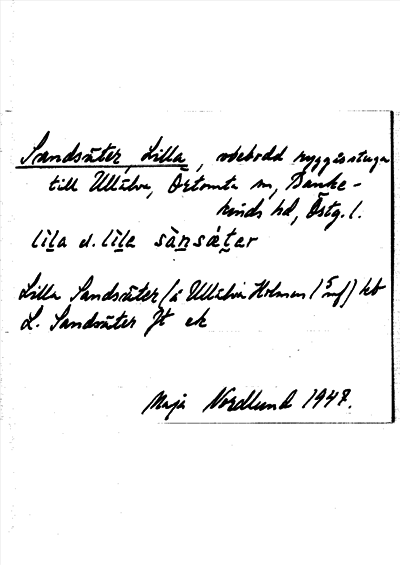 Sandsäter, Lilla, obebodd ryggåsstuga
till Ullälva, Örtomta sn, Banke-
kinds hd, Östg. l.
lila el. lila sànsǽter
Lilla Sandsäter (å Ullälva Holmen 1 5 mf) hb
L. Sandsäter Jt ek
Maja Nordlund 1947.